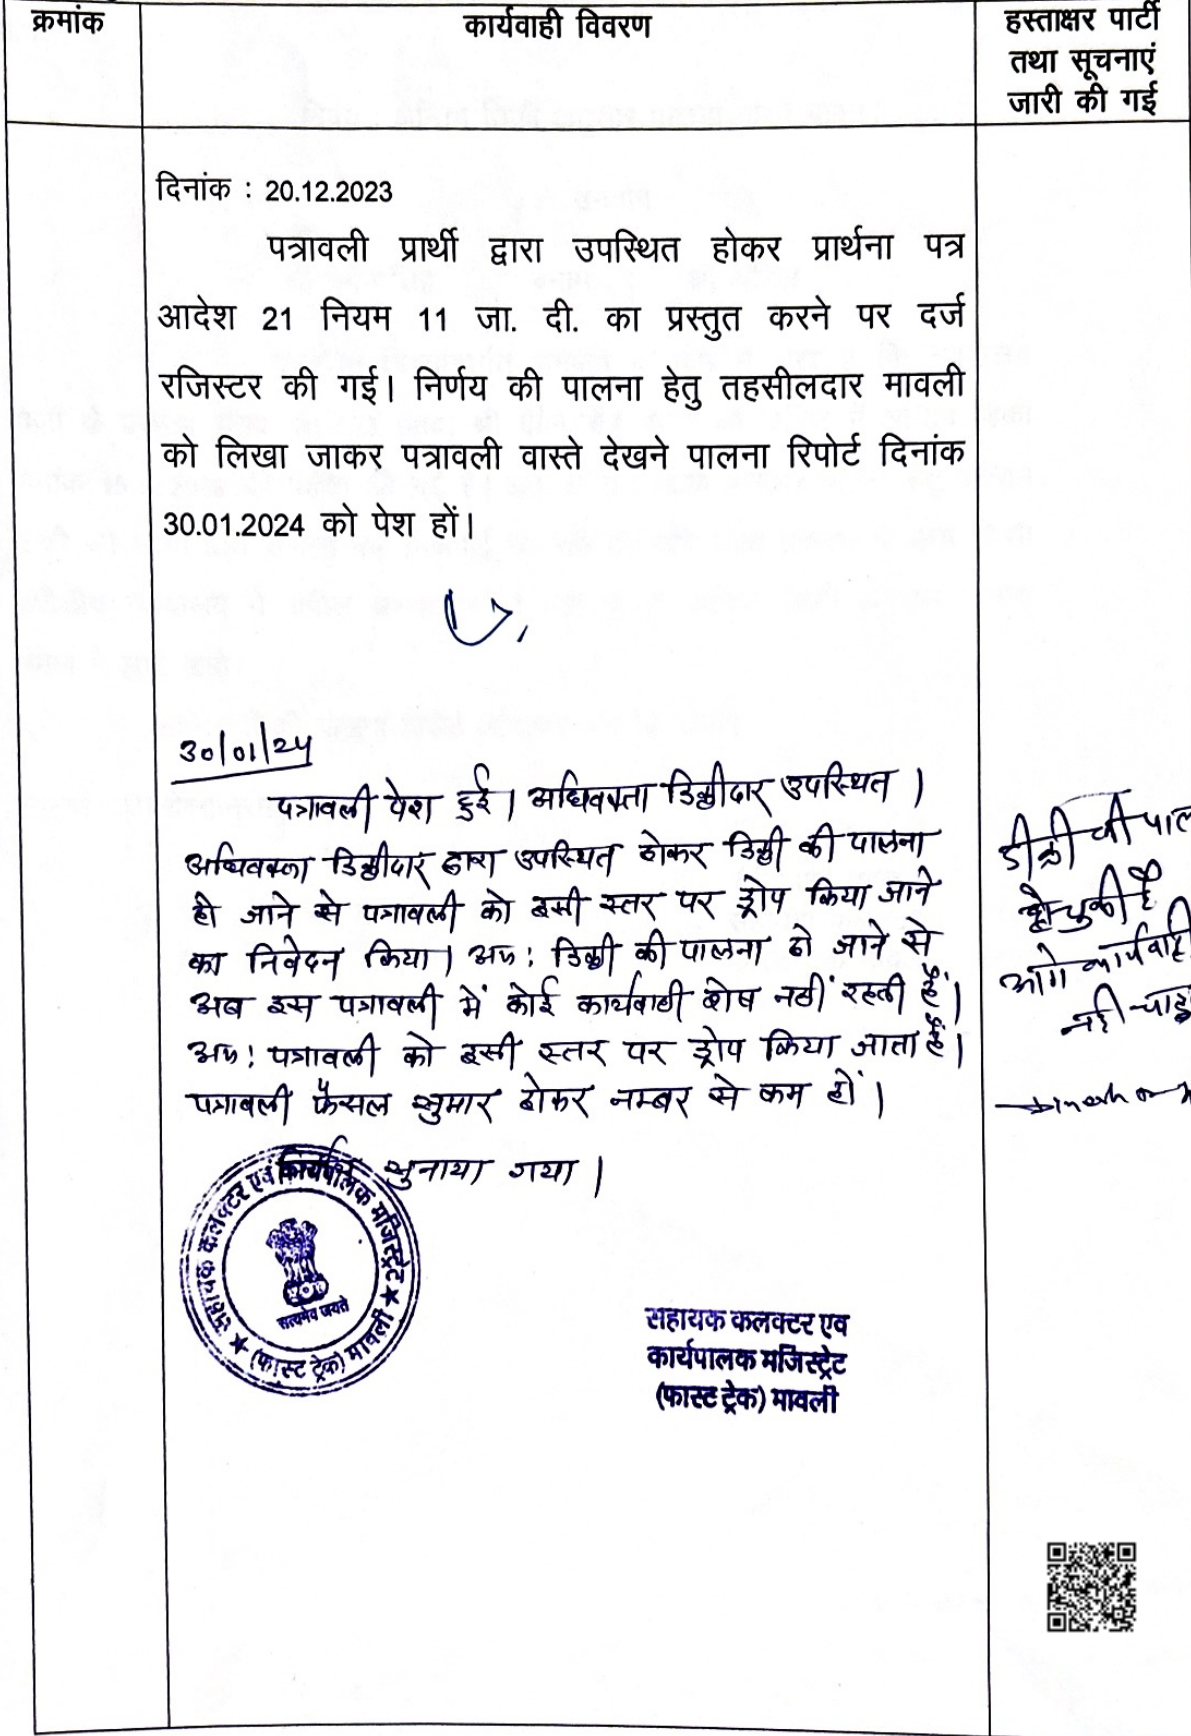 क्रमांक
कार्यवाही विवरण
हस्ताक्षर पार्टी
तथा सूचनाएं
जारी की गई
दिनांक : 20.12.2023
पत्रावली प्रार्थी द्वारा उपस्थित होकर प्रार्थना पत्र
आदेश 21 नियम 11 जा. दी. का प्रस्तुत करने पर दर्ज
रजिस्टर की गई। निर्णय की पालना हेतु तहसीलदार मावली
को लिखा जाकर पत्रावली वास्ते देखने पालना रिपोर्ट दिनांक
30.01.2024 को पेश हों।
30/01/24
पत्रावली पेश हुई। अधिवक्ता डिक्रीदार उपस्थित।
अधिवक्ता डिक्रीदार द्वारा उपस्थित होकर डिक्री की पालना
हो जाने से पत्रावली को इसी स्तर पर ड्रोप किया जाने
का निवेदन किया। अतः डिक्री की पालना हो जाने से
अब इस पत्रावली में कोई कार्यवाही शेष नहीं रहती हैं।
अतः पत्रावली को इसी स्तर पर ड्रोप किया जाता हैं।
पत्रावली फैसल शुमार होकर नम्बर से कम हों।
सुनाया गया।
डीक्री की पाल
हो चुकी है
आगे कार्यवाही
नही चाह
सहायक कलक्टर एवं कार्यपालक मजिस्ट्रेट
(फास्ट ट्रेक) मावली
सत्यमेव जयते
सहायक कलक्टर एव
कार्यपालक मजिस्ट्रेट
(फास्ट ट्रेक) मावली